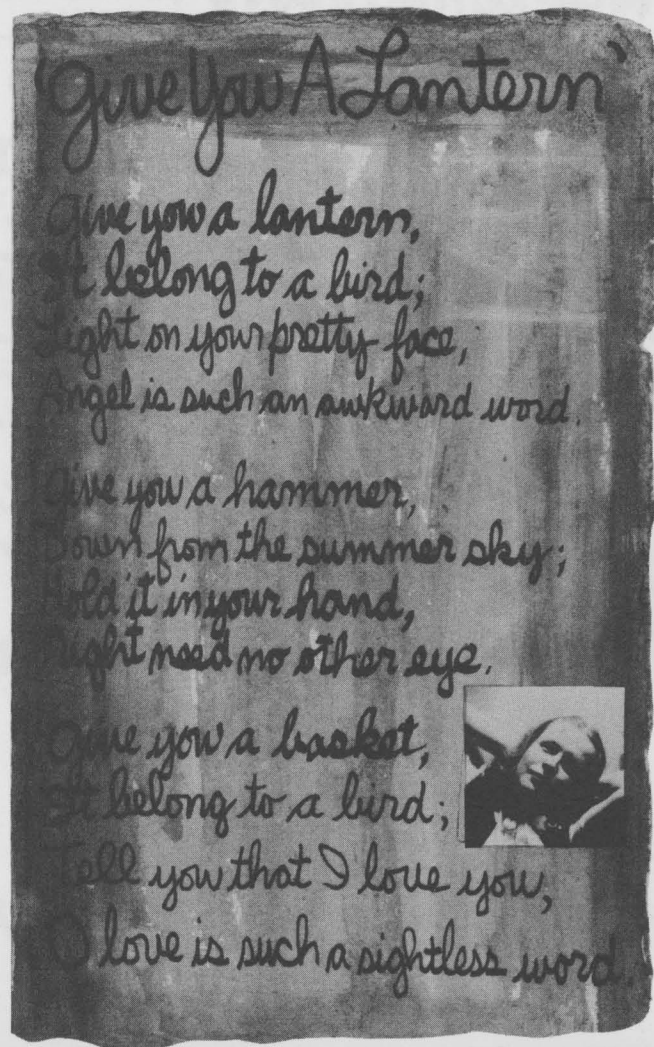 'Give You A Lantern'
Give you a lantern,
It belong to a bird;
Light on your pretty face,
Angel is such an awkward word.
Give you a hammer,
Down from the summer sky;
Hold it in your hand,
Might need no other eye.
Give you a basket,
It belong to a bird;
Tell you that I love you,
O love is such a sightless word.